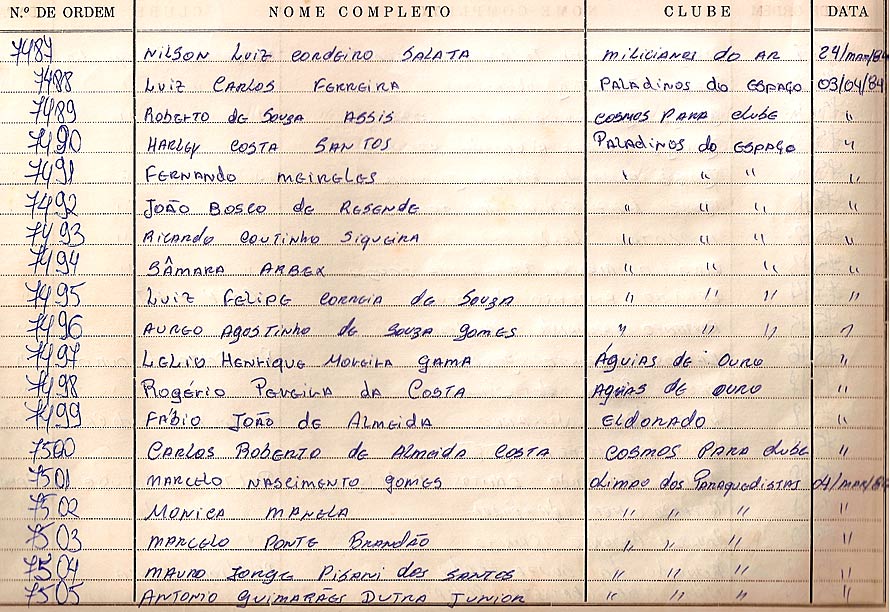 N.º DE ORDEM NOME COMPLETO CLUBE DATA
7487 NILSON LUIZ CORDEIRO SALATA MILICIANOS do AR 24/MAR/84
7488 LUIZ CARLOS FERREIRA PALADINOS do ESPAÇO 03/04/84
7489 ROBERTO de SOUZA ASSIS COSMOS PARA clube "
7490 HARLEY COSTA SANTOS PALADINOS do ESPAÇO "
7491 FERNANDO MEIRELES " " " "
7492 JOÃO BOSCO de RESENDE " " " "
7493 RICARDO COUTINHO SIQUEIRA " " " "
7494 SÂMARA ARBEX " " " "
7495 LUIZ FELIPE CORREIA de SOUZA " " " "
7496 AUREO AGOSTINHO de SOUZA GOMES " " " "
7497 LELIO HENRIQUE MOREIRA GAMA ÁGUIAS de OURO "
7498 ROGÉRIO PEREIRA DA COSTA AGUIAS de OURO "
7499 FÁBIO JOÃO de ALMEIDA ELDORADO "
7500 CARLOS ROBERTO de ALMEIDA COSTA COSMOS PARA clube "
7501 MARCELO NASCIMENTO GOMES OLIMPO dos PARAQUEDISTAS 04/MAR/84
7502 MONICA MANELA " " " "
7503 MARCELO PONTE BRANDÃO " " " "
7504 MAURO JORGE PISANI dos SANTOS " " " "
7505 ANTONIO GUIMARÃES DUTRA JUNIOR " " " "